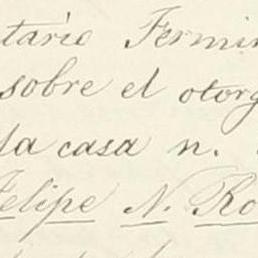 tario Fermin
sobre el otorg
la casa n.
Felipe N. Ro